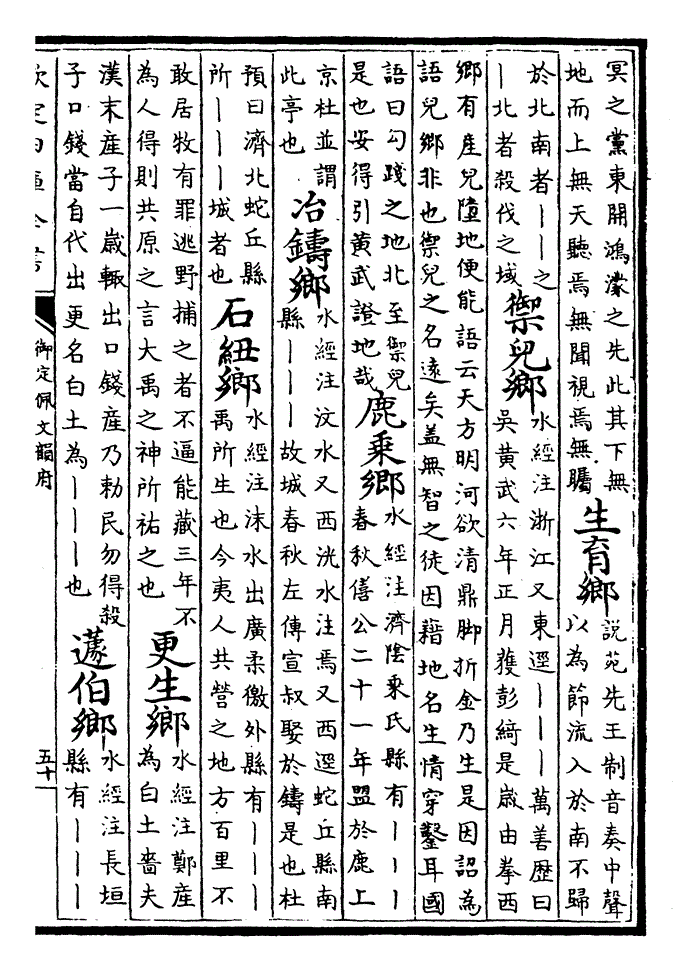 冥之黨東開鴻濛之先此其下無
地而上無天聽焉無聞視焉無矚
生育鄉
說苑先王制音奏中聲
以為節流入於南不歸
於北南者——之
—北者殺伐之域
禦兒鄉
水經注浙江又東逕———萬善歷曰
吳黃武六年正月獲彭綺是歳由拳西
鄉有産兒墮地便能語云天方明河欲清鼎脚折金乃生是因詔為
語兒鄉非也禦兒之名逺矣盖無智之徒因藉地名生情穿鑿耳國
語曰勾踐之地北至禦兒
是也安得引黃武證地哉
鹿乗鄉
水經注濟陰乗氏縣有———
春秋僖公二十一年盟於鹿上
京杜並謂
此亭也
冶鑄鄉
水經注汶水又西洸水注焉又西逕蛇丘縣南
縣———故城春秋左傳宣叔娶於鑄是也杜
預曰濟北蛇丘縣
所———城者也
石紐鄉
水經注沫水出廣柔徼外縣有———
禹所生也今夷人共營之地方百里不
敢居牧有罪逃野捕之者不逼能藏三年不
為人得則共原之言大禹之神所祐之也
更生鄉
水經注鄭産
為白土嗇夫
漢末産子一歳輒出口錢産乃勅民勿得殺
子口錢當自代出更名白土為———也
蘧伯鄉
水經注長垣
縣有———
欽定四庫全書
御定佩文韻府
五十